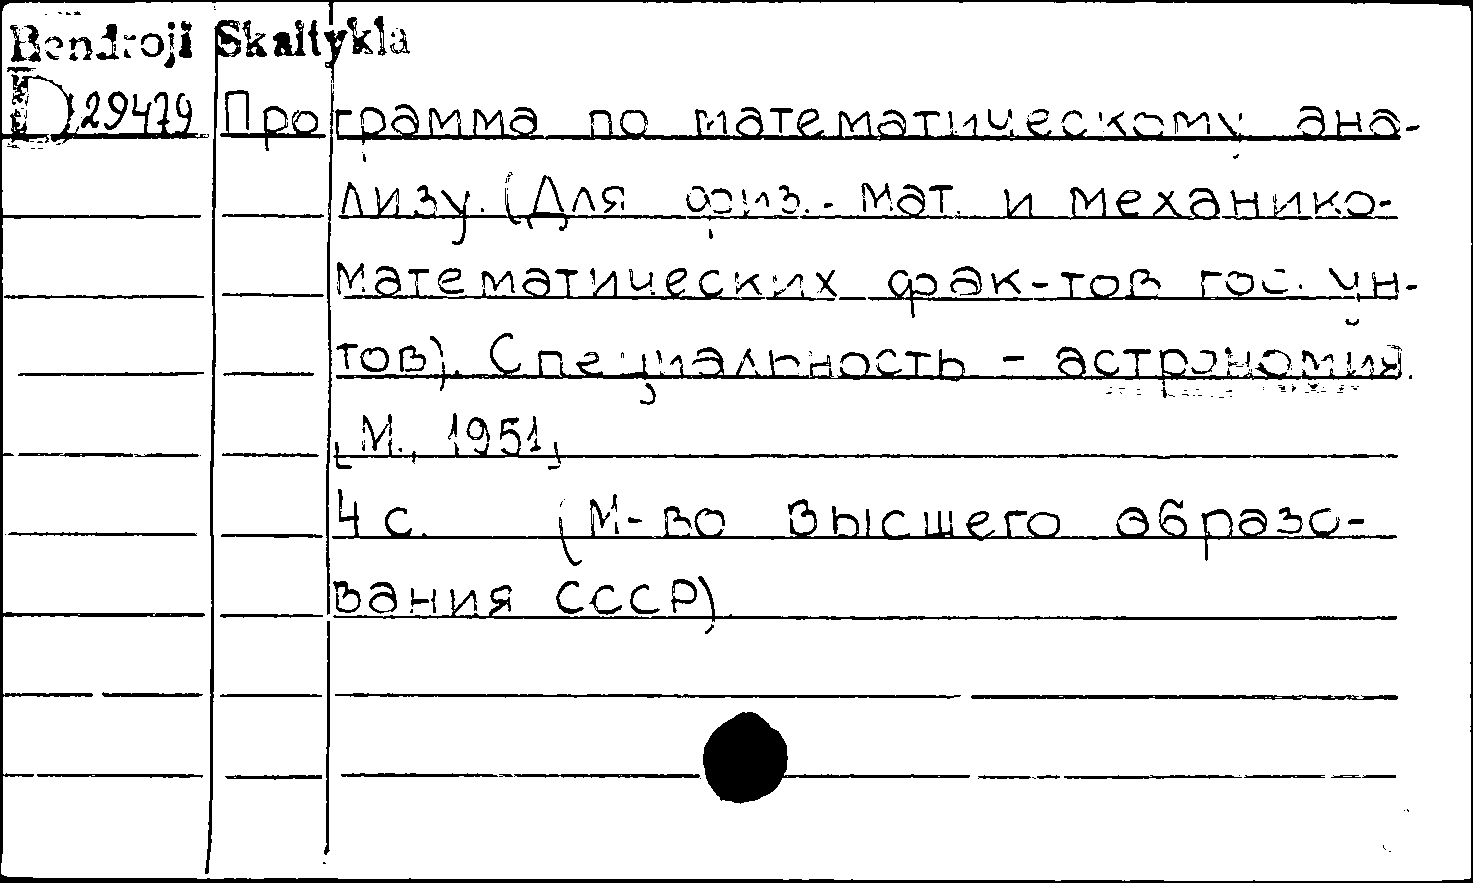 Bendroji Skaitykla
D 29479 Программа по математическому ана-
лизу. (Для физ.- мат. и механико-
математических фак-тов гос. ун-
тов). Специальность - астрономия.
[М., 1951]
4 с. (М-во высшего образо-
вания СССР)